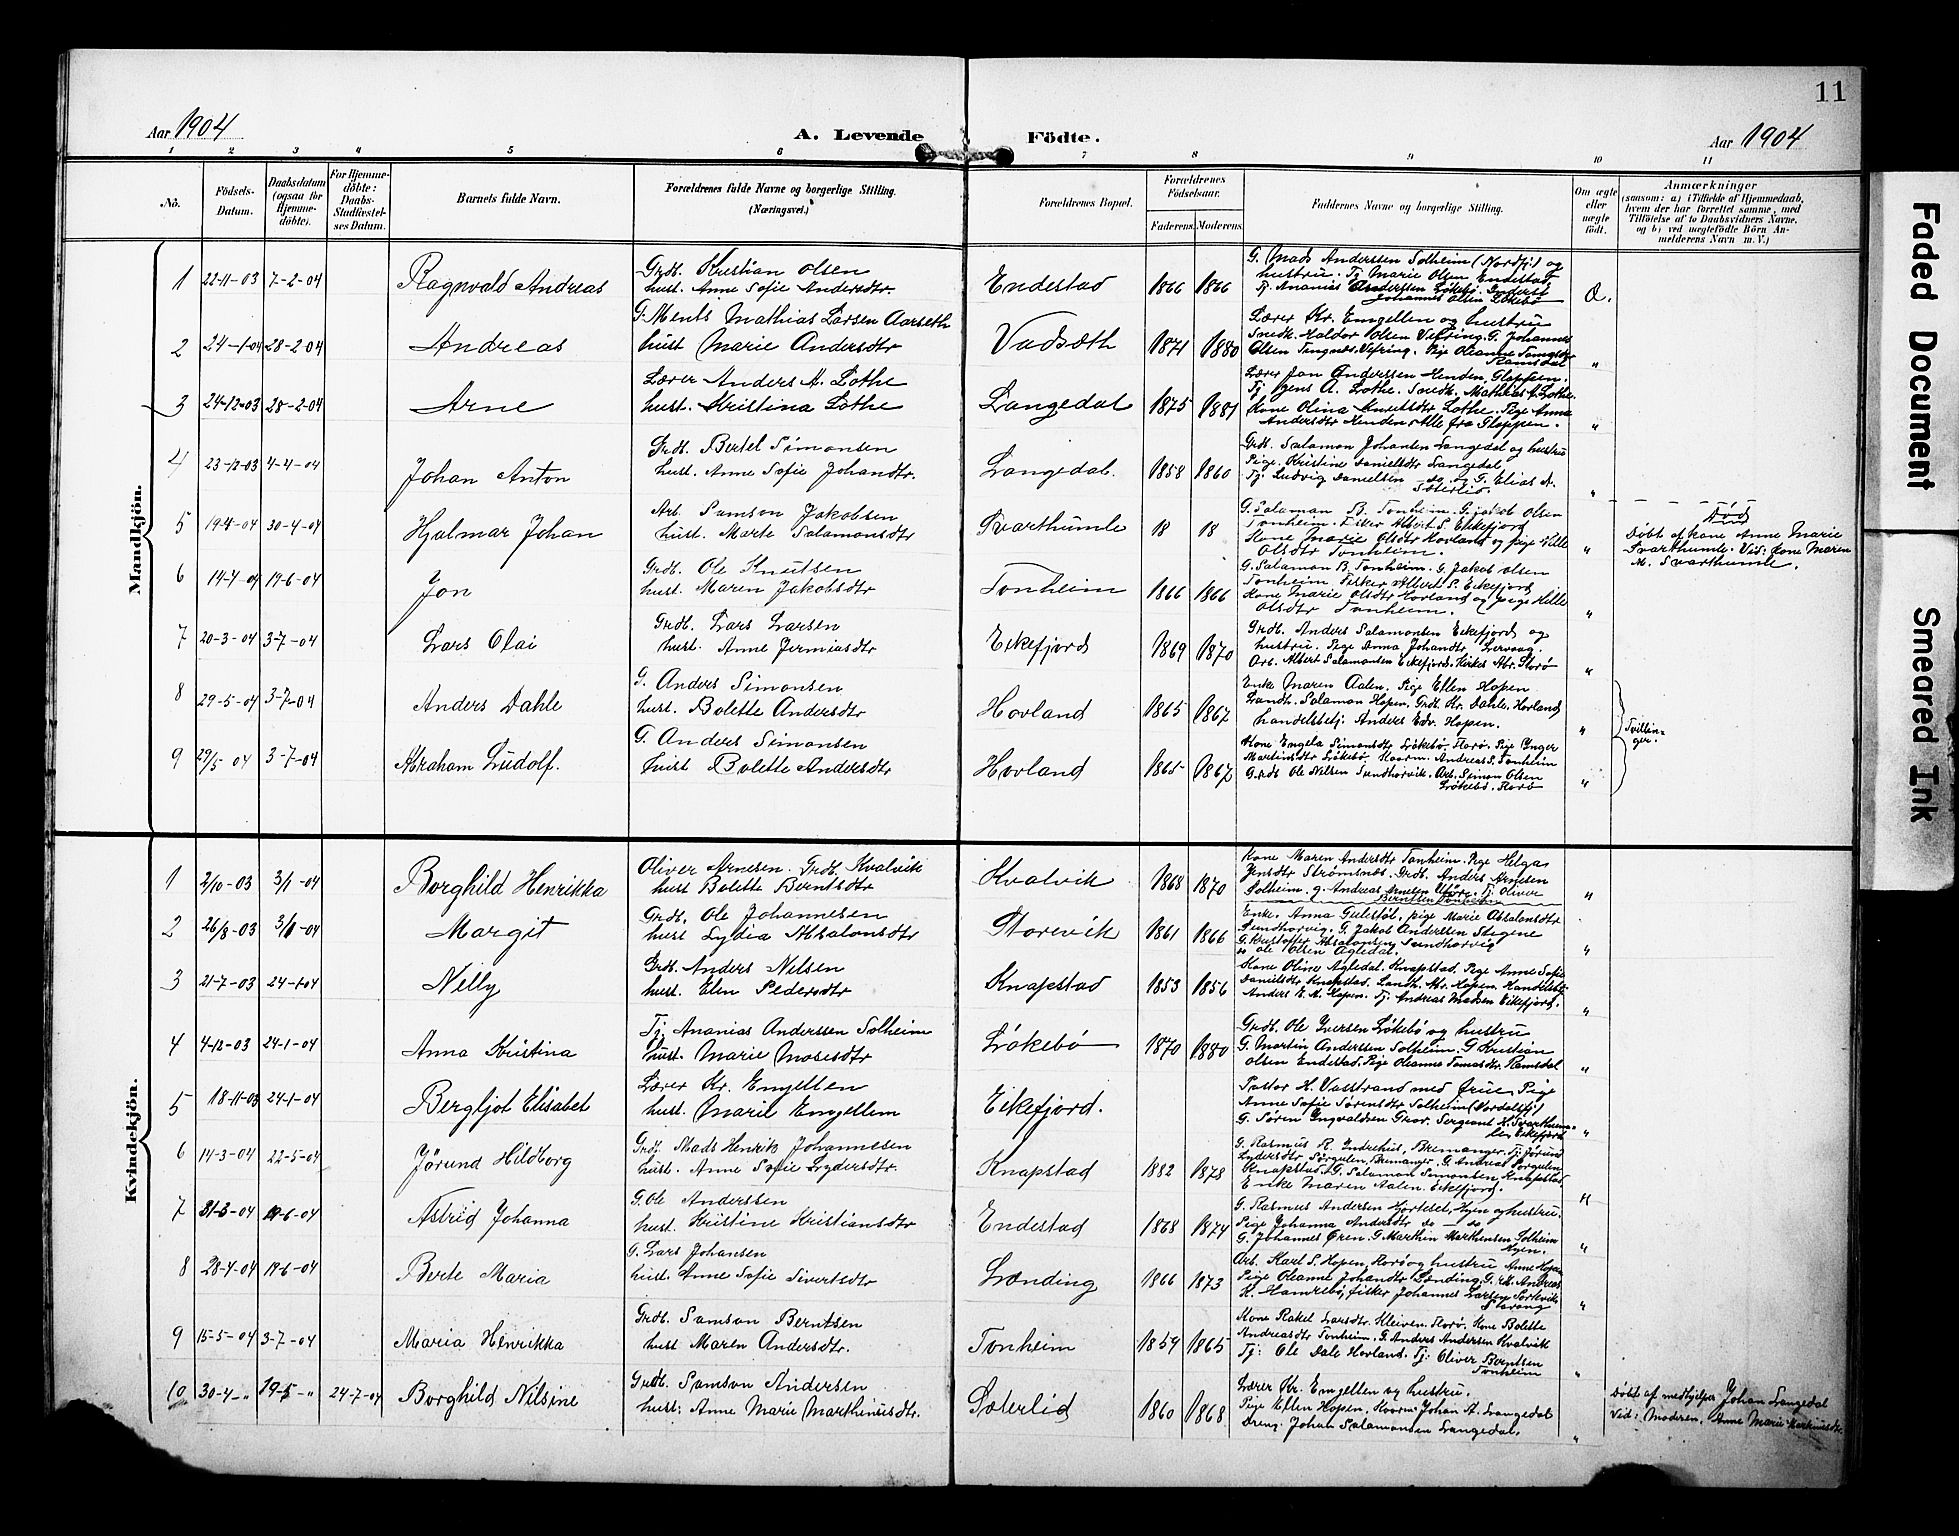 11
Aar 1904
A. Levende Födte.
Aar 1904
1 2 3 4 5 6 7 8 9 10 11
No.
Födsels-Datum.
Daabsdatum (ogsaa for Hjemmedöbte).
For Hjemmedöbte: Daabs-Stadfæstelses Datum.
Barnets fulde Navn.
Forældrenes fulde Navne og borgerlige Stilling. (Næringsvei.)
Forældrenes Bopæl.
Forældrenes Födselsaar.
Faderens Moderens
Faddernes Navne og borgerlige Stilling.
Om ægte eller uægte födt.
Anmærkninger
(saasom: a) i Tilfælde af Hjemmedaab, hvem der har forrettet samme, med Tilföielse af to Daabsvidners Navne, og b) ved uægtefödte Börn Anmelderens Navn m. V.)
Mandkjön.
1 22-11-03 7-2-04 Ragnvald Andreas
Grdb. Kristian Olsen
hust. Anne Sofie Andersdtr.
Endestad 1866 1866
G. Mads Anderssen Solheim (Nordfj.) og
hustru. Tj. Marie Olsen Endestad
Tj. Ananias Anderssen Løkebø.
Johannes Olsen Løkebø
2 24-1-04 28-2-04 Andreas
G. Ments Mathias Larsen Aarseth
hust Marie Andersdtr
Vadsæth 1871 1880
Lærer Kr. Emgellen og hustru
Snedk. Haldor Olsen Vefring. G. Johannes
Olsen Vefring. Pige Oleanne
Ramsdal
"
3 24-12-03 28-2-04 Arne
Lærer Anders M. Lothe
hust. Kristina Lothe
Langedal 1875 1881
Lærer Jon Anderssen Henden, Gloppen.
Tj. Jens A. Lothe. Snedk. Mathias A. Lothe.
Kone Olina Knutsdtr Lothe. Pige Anna
Andersdtr Henden. Alle fra Gloppen.
"
4 23-12-03 4-4-04 Johan Anton
Grdb. Bertel Simonsen
hust. Anne Sofie Johandtr.
Langedal. 1858 1860
Grdb. Salamon Johansen Langedal og hustru
Pige Kristine Danielsdtr Langedal
Tj. Ludvig Danielsen do og G. Elias A.
Sæterlid.
"
5 19-4-04 30-4-04 Hjalmar Johan
Arb. Samson Jakobsen
hust. Marte Salamonsdtr
Svarthumle 18 18
G. Salaman B. Tonheim. G. Jakob Olsen
Tonheim. Fisker Albert S. Eikefjord
Kone Marie Olsdtr Hovland og pige Hille
Olsdtr Tonheim.
"
Død
Døbt af kone Anne Marie
Svarthumle. Vid: kone Maren
M. Svarthumle.
6 14-4-04 19-6-04 Jon
Grdb. Ole Knutsen
hust. Maren Jakobsdtr
Tonheim 1866 1866
G. Salaman B. Tonheim. G. Jakob Olsen
Tonheim. Fisker Albert S. Eikefjord
Kone Marie Olsdtr Hovland og pige Hille
Olsdtr Tonheim.
"
7 20-3-04 3-7-04 Lars Olai
Grdb. Lars Larsen
hust. Anne Jermiasdtr
Eikefjord 1869 1870
Grdb. Anders Salamonsen Eikefjord og
hustru. Pige Anna Johandtr Lervaag.
Arb. Albert Salamonsen Eikefjord. Florø
"
8 29-5-04 3-7-04 Anders Dahle
G. Anders Simonsen
hust. Bolette Andersdtr
Hovland 1865 1867
Enke Maren Aalen. Pige Ellen Hopen
Landh. Salaman Hopen. Grdb Kr. Dahle, Hovland
handelsbetj. Anders Edv. Hopen.
"
Tvillinger.
9 29/5 04 3-7-04 Abraham Ludolf.
G. Anders Simonsen
hust Bolette Andersdtr
Hovland 1865 1867
Kone Engela Simonsdtr Løkebø. Florø. Pige Inger
Martinsdtr Løkebø. Andreas S. Tonheim
Grdb Ole Nilsen Sundhorvik. Arb. Simon Olsen
Løkebø. Florø
"
Kvindekjön.
1 2/10-03 3/1-04 Borghild Henrikka
Oliver Arnesen. Grdb. Kvalvik
hust Bolette Berntsdtr
Kvalvik 1868 1870
Kone Maren Andersdtr Tonheim. Pige Helga
Jensdtr Strømsnæs. Grdb. Anders Arnesen
Solheim. G. Andreas Arnesen Utför. Tj. Oliver
Berntsen Tonheim
"
2 26/8-03 3/1-04 Margit
Grdb. Ole Johannesen
hust Lydia Absalonsdtr
Storevik 1861 1866
Enke. Anna Gulestøl, pige Marie Absalonsdtr
Sundhorvig. G. Jakob Anderssen Stegene
G. Kristoffer Absalonsen, Sundhorvig
Ole Olsen Agledal.
"
3 21-7-03 24-1-04 Nelly
Grdb. Anders Nilsen
hust. Elen Pedersdtr
Knapstad 1853 1856
Kone Oline Agledal. Knapstad. Pige Anne Sofie
Danielsdtr Knapstad. Landh. Abr. Hopen. Handelsbetj.
Anders E. A. Hopen. Tj. Andreas Madsen Eikefjord.
"
4 4-12-03 24-1-04 Anna Kristina
Tj. Ananias Anderssen Solheim
hust. Marie Mosesdtr
Løkebø 1870 1880
Grdb. Ole Iversen Løkebø og hustru
G. Martin Anderssen Solheim. G Kristian
Olsen Endestad. Pige Oleanna Tomasdtr. Ramsdal
"
5 18-11-03 24-1-04 Bergljot Elisabet
Lærer Kr. Emgellen
hust. Marie Emgellem
Eikefjord.
Pastor H. Vasstrand med frue, Pige
Anne Sofie Sørensdtr Solheim (Nordalsfj.)
G. Søren Ingvaldsen Grov. Sergeant K. Svarthum-
le, Eikefjord
"
6 14-3-04 22-5-04 Jørund Hildborg
Grdb. Mads Henrik Johannesen
hust. Anne Sofie Lydersdtr.
Knapstad 1882 1878
G. Rasmus R. Indrehus, Bremanger. Tj. Jørund
Lydersdtr Sørgulen, Bremanger. G. Andreas Sørgulen
Knapstad. G. Salamon Simonsen Knapstad
Enke Maren Aalen. Eikefjord.
"
7 31-3-04 19-6-04 Astrid Johanna
G. Ole Anderssen
hust. Kristine Kristiansdtr
Endestad 1868 1874
G. Rasmus Andersen Hjorteset, Hyen og hustru.
Pige Johanna Andersdtr do - do
G. Johannes Øren. G. Marthin Marthinsen Solheim
Hyen.
"
8 28-4-04 19-6-04 Berte Maria
G. Lars Johansen
hust. Anne Sofie Sivertsdtr
Lænding 1866 1873
Arb. Karl S. Hopen, Florø og hustru Anne Hopen
Pige Oleanne Johandtr Lænding. G. M. Andreas
K. Hamrebø, fisker Johannes Larsen
Stavang
"
9 15-5-04 3-7-04 Maria Henrikka
Grdb. Samson Berntsen
hust Maren Andersdtr.
Tonheim 1859 1865
Kone Rakel Larsdtr. Kleiven. Florø. Kone Bolette
Andreasdtr Tonheim. G. Anders Andersen Kvalvik
Tj: Ole Dale Hovland. Tj: Oliver Berntsen
Tonheim
"
10 30-4-" 19-5-" 24-7-04 Borghild Nilsine
Grdb. Samson Andersen
hust: Anne Marie Marthinusdtr.
Sæterlid 1860 1868
Lærer Kr. Emgellen og hustru.
Pige Ellen Hopen, Johan A. Langedal
Dreng Johan Salamonsen Langedal.
"
Døbt af medhjelper Johan Langedal
Vid: Moderen, Anne Marie Markusdtr.
Faded Document
Smeared Ink